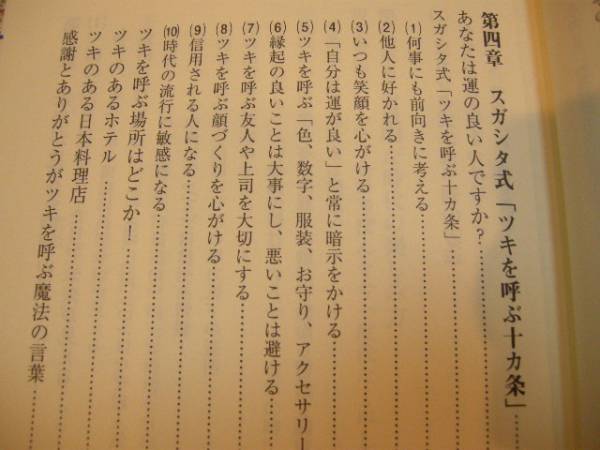 第四章　スガシタ式「ツキを呼ぶ十カ条」
あなたは運の良い人ですか？
スガシタ式、「ツキを呼ぶ十カ条」
⑴何事にも前向きに考える
⑵他人に好かれる
⑶いつも笑顔を心がける
⑷「自分は運が良い」と常に暗示をかける
⑸ツキを呼ぶ「色、数字、服装、お守り、アクセサリー
⑹縁起の良いことは大事にし、悪いことは避ける
⑺ツキを呼ぶ友人や上司を大切にする
⑻ツキを呼ぶ顔づくりを心がける
⑼信用される人になる
⑽時代の流行に敏感になる
ツキを呼ぶ場所はどこか！
ツキのあるホテル
ツキのある日本料理店
感謝とありがとうがツキを呼ぶ魔法の言葉